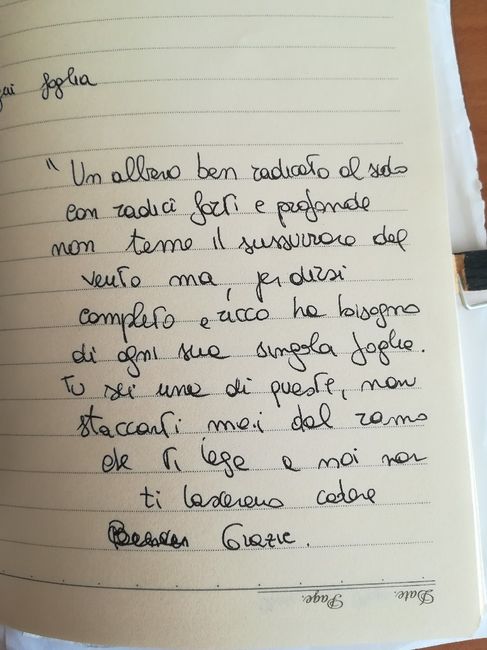 foglia
" Un albero ben radicato al suolo
con radici forti e profonde
non teme il sussurrare del
vento ma, per dirsi
completo e ricco ha bisogno
di ogni sua singola foglia.
Tu sei una di queste, non
staccarti mai dal ramo
che ti lega e noi non
ti lasceremo cadere
Grazie.
Date. Page.